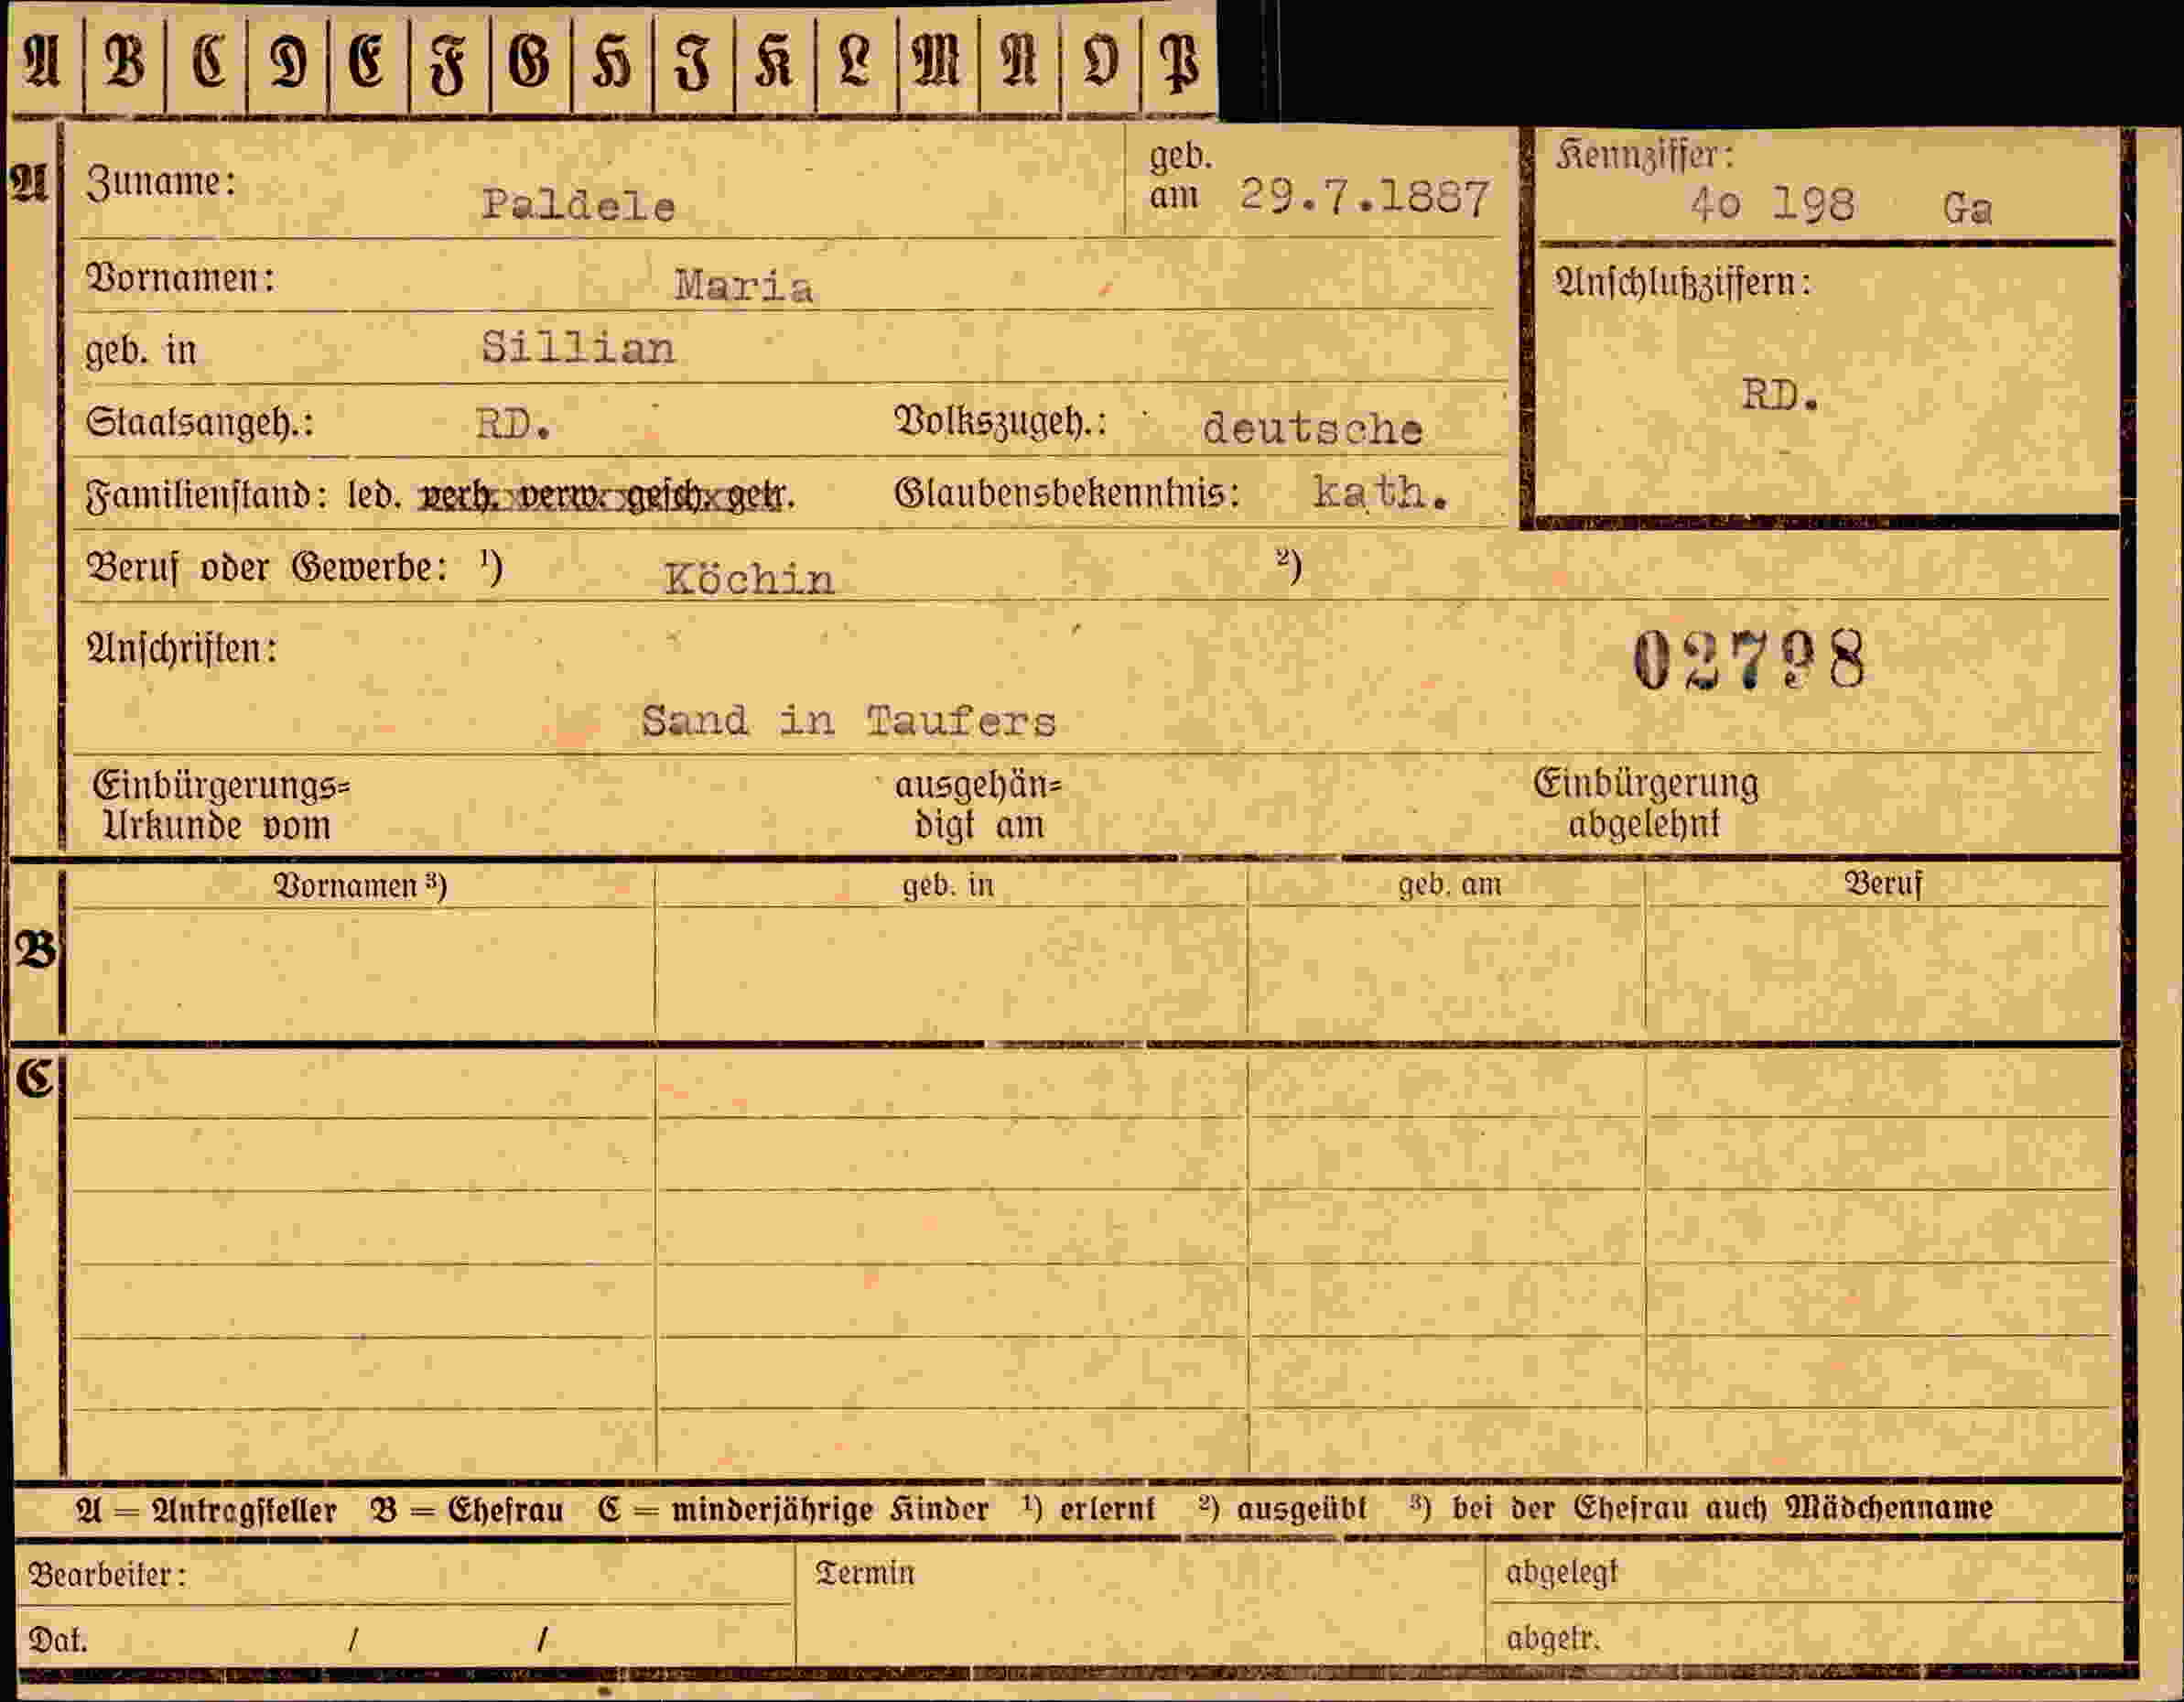 A B C D E F G H I K L M N O P
A Zuname: Paldele geb. am 29.7.1887
Kennziffer: 4o 198 Ga
Vornamen: Maria
Anschlußziffern:
geb. in Sillian
RD.
Staatsangeh.: RD. Volkszugeh.: deutsche
Familienstand: led. verh. verw. gesch. getr. Glaubensbekenntnis: kath.
Beruf oder Gewerbe: ¹) Köchin ²)
Anschriften: 02798
Sand in Taufers
Einbürgerungs= ausgehän= Einbürgerung
Urkunde vom digt am abgelehnt
Vornamen ³) geb. in geb. am Beruf
B
C
A = Antragsteller B = Ehefrau C = minderjährige Kinder ¹) erlernt ²) ausgeübt ³) bei der Ehefrau auch Mädchenname
Bearbeiter: Termin abgelegt
Dat. / / abgetr.